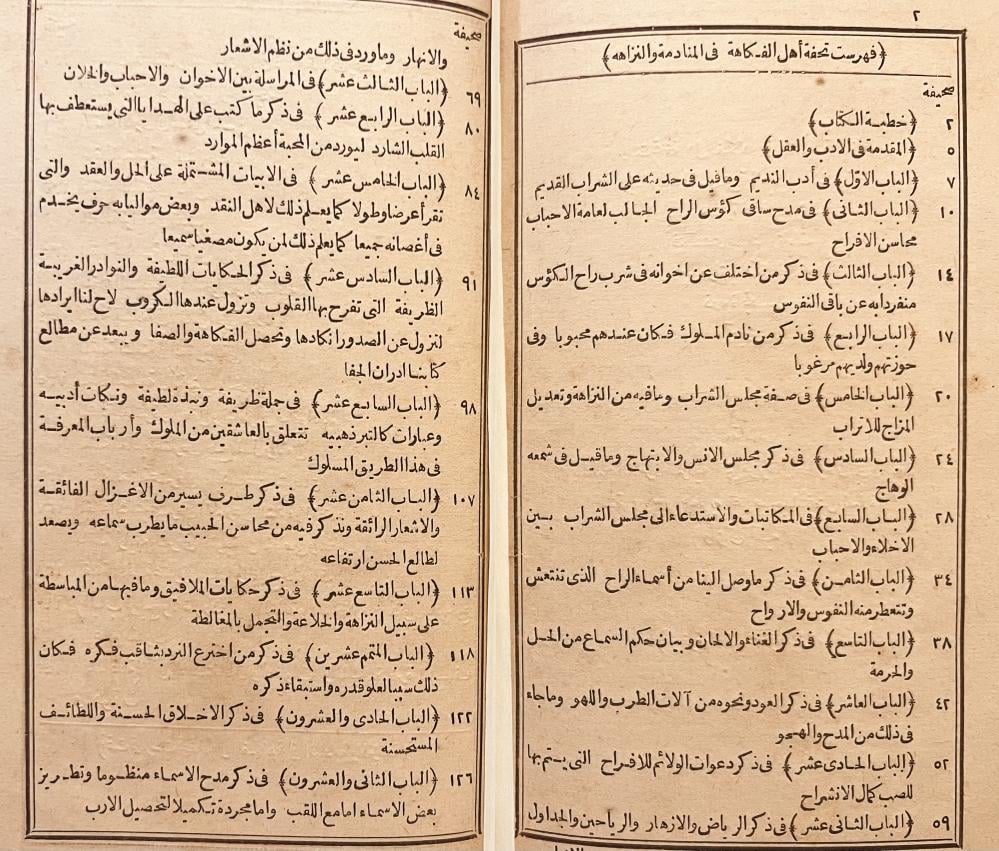 ٢
﴿فهرست تحفة أهل الفكاهة فى المنادمة والنزاهه﴾
صحيفة
٢ ﴿خطبة الكتاب﴾
٥ ﴿المقدمة فى الادب والعقل﴾
٧ ﴿الباب الاول﴾ فى أدب النديم وماقيل فى حديثه على الشراب القديم
١٠ ﴿الباب الثانى﴾ فى مدح ساقى كؤس الراح الجالب لعامة الاحباب
محاسن الافراح
١٤ ﴿الباب الثالث﴾ فى ذكر من اختلف عن اخوانه فى شرب راح الكؤس
منفردا به عن باقى النفوس
١٧ ﴿الباب الرابع﴾ فى ذكر من نادم الملوك فكان عندهم محبوبا وفى
حوزتهم ولديهم مرغوبا
٢٠ ﴿الباب الخامس﴾ فى صفة مجلس الشراب ومافيه من النزاهة وتعديل
المزاج للاتراب
٢٤ ﴿الباب السادس﴾ فى ذكر مجلس الانس والابتهاج وماقيل فى شمعه
الوهاج
٢٨ ﴿الباب السابع﴾ فى المكاتبات والاستدعاء الى مجلس الشراب بين
الاخلاء والاحباب
٣٤ ﴿الباب الثامن﴾ فى ذكر ماوصل الينا من أسماء الراح الذى تنتعش
وتتعطر منه النفوس والارواح
٣٨ ﴿الباب التاسع﴾ فى ذكر الغناء والالحان وبيان حكم السماع من الحل
والحرمة
٤٢ ﴿الباب العاشر﴾ فى ذكر العود ونحوه من آلات الطرب واللهو وماجاء
فى ذلك من المدح والهجو
٥٢ ﴿الباب الحادى عشر﴾ فى ذكر دعوات الولائم للافراح التى يتم بها
للصب كمال الانشراح
٥٩ ﴿الباب الثانى عشر﴾ فى ذكر الرياض والازهار والرياحين والجداول
صحيفة
والانهار وماورد فى ذلك من نظم الاشعار
٦٩ ﴿الباب الثالث عشر﴾ فى المراسلة بين الاخوان والاحباب والخلان
٨٠ ﴿الباب الرابع عشر﴾ فى ذكر ما كتب على الهدايا التى يستعطف بها
القلب الشارد ليورد من المحبة أعظم الموارد
٨٤ ﴿الباب الخامس عشر﴾ فى الابيات المشتملة على الحل والعقد والتى
تقرأ عرضا وطولا كما يعلم ذلك لاهل النقد وبعض مواليا به حرف يخدم
فى أغصانه جميعا كما يعلم ذلك لمن يكون مصغيا سميعا
٩١ ﴿الباب السادس عشر﴾ فى ذكر الحكايات اللطيفة والنوادر الغريبة
الظريفة التى تفرح بها القلوب وتزول عندها الكروب لاح لنا ايرادها
لتزول عن الصدور انكادها وتحصل الفكاهة والصفا ويبعد عن مطالع
كتابنا ادران الجفا
٩٨ ﴿الباب السابع عشر﴾ فى جملة ظريفة ونبذة لطيفة ونكات أدبيه
وعبارات كالتبر ذهبيه تتعلق بالعاشقين من الملوك وأرباب المعرفة
فى هذا الطريق المسلوك
١٠٧ ﴿الباب الثامن عشر﴾ فى ذكر طرف يسير من الاغزال الفائقة
والاشعار الرائقة ونذكر فيه من محاسن الحبيب ما يطرب سماعه ويصعد
لطالع الحسن ارتفاعه
١١٣ ﴿الباب التاسع عشر﴾ فى ذكر حكايات الملافيق ومافيها من المباسطة
على سبيل النزاهة والخلاعة والتجمل بالمغالطة
١١٨ ﴿الباب المتمم عشرين﴾ فى ذكر من اخترع النرد بثاقب فكره فكان
ذلك سببا لعلو قدره واستبقاء ذكره
١٢٢ ﴿الباب الحادى والعشرون﴾ فى ذكر الاخلاق الحسنة واللطائف
المستحسنة
١٢٦ ﴿الباب الثانى والعشرون﴾ فى ذكر مدح الاسماء منظوما وتطريز
بعض الاسماء امامع اللقب واما مجردة تكميلا لتحصيل الارب